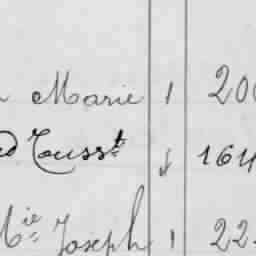 Marie 1 200
Touss.t 1 164
Mie Joseph 1 22